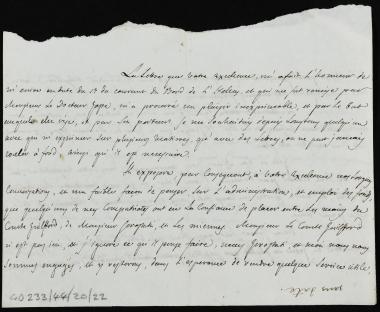 La Lettre que Votre Excellence, m'a fait l'honneur de
m'ecrire en date du 17 du courant du Bord de L'
et qui me fut remise par
Monsieur le Docteur Jape, m'a procuré un plaisir inexprimable, et par le but
auquel elle vise, et par son porteur. Je souhaitais depuis longtems quelqu'un
avec qui m'exprimer sur plusieurs matieres, qui avec des Lettres, on ne peut jamais
couler à fond ainsi qu'il est necessaire.
Il exposera par consequent, à Votre Excellence nos longues
Conversations, et ma faible façon de penser sur l'administration, et emploi des fonds,
que quelqu'uns de mes Compatriotes ont eu la Confiance de placer entre les mains du
Comte Guilford, de Monsieur et les miennes. Monsieur le Comte Guilford
n'est pas ici, et j'ignore ce qu'il pense faire, mais et moi nous nous
sommes engagés, et y resterons, dans l'esperance de rendre quelque service utile,
sans date.
GD 233/44/20/22